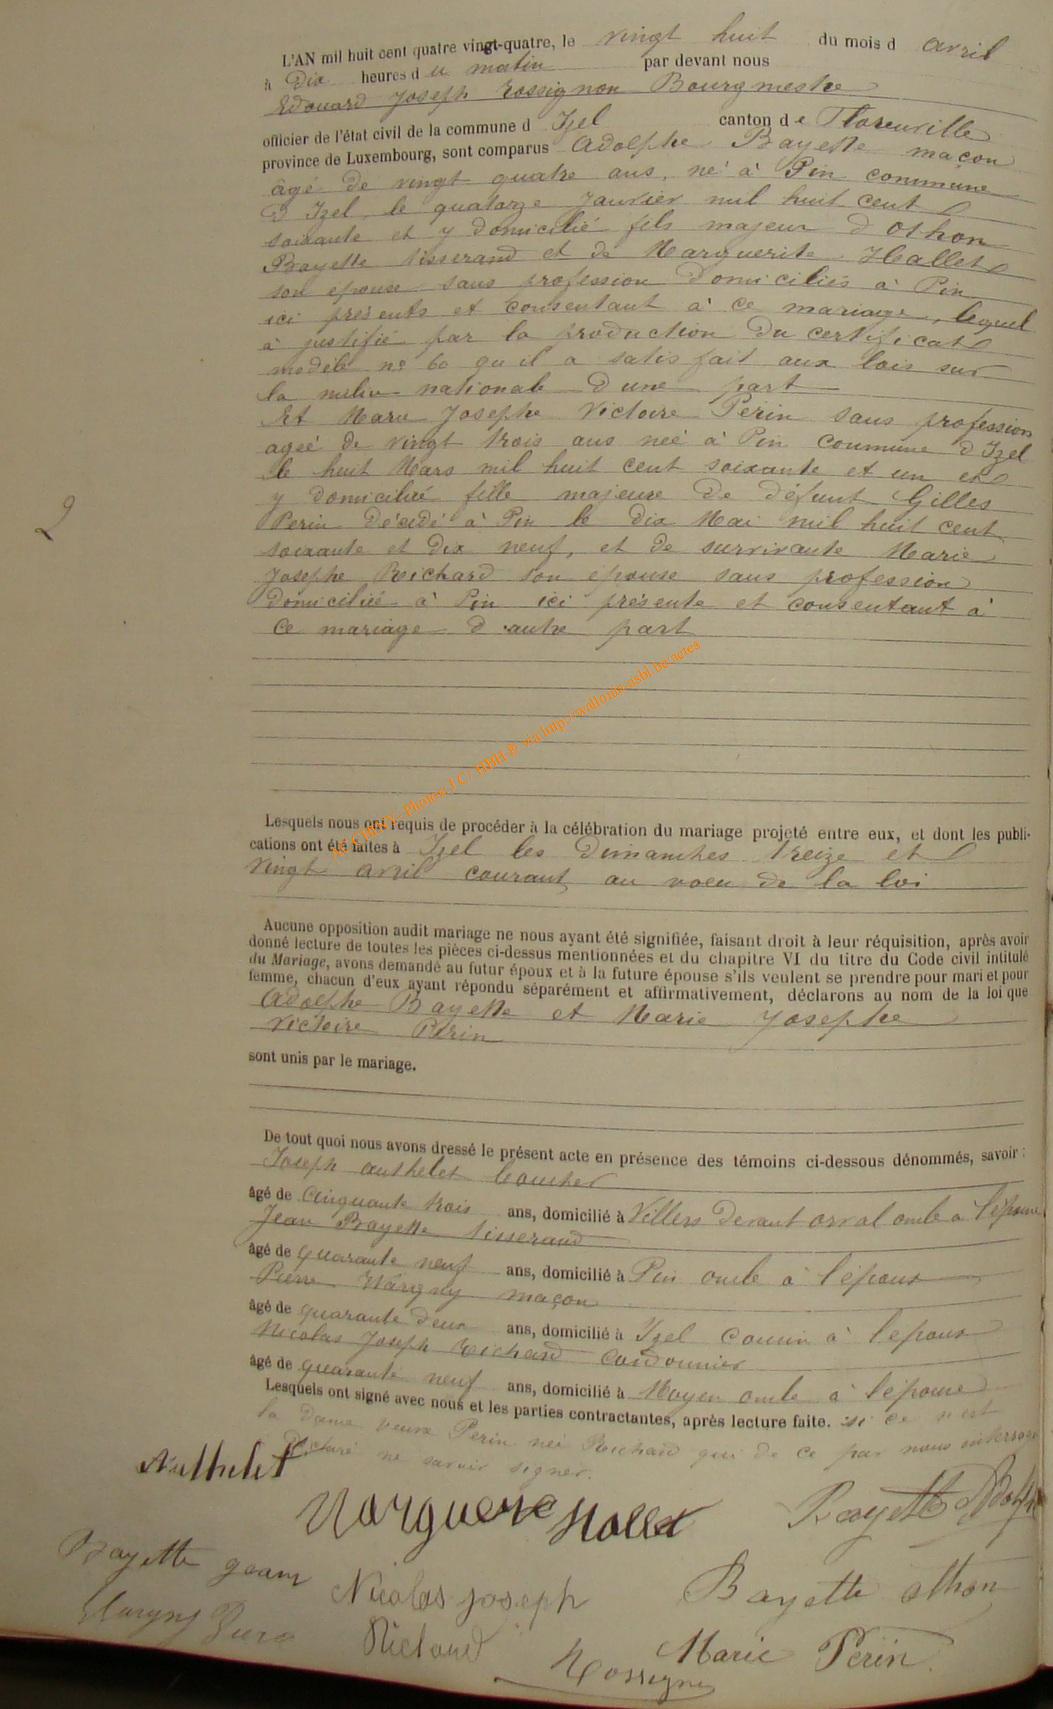 L'AN mil huit cent quatre vingt-quatre, le vingt huit du mois d avril
à Dix heures d u matin par devant nous
Edouard Joseph Rossignon Bourgmestre
officier de l'état civil de la commune d Izel canton d e Florenville
province de Luxembourg, sont comparus Adolphe Bayette maçon
âgé de vingt quatre ans, né à Pin commune
d Izel le quatorze Janvier mil huit cent
soixante et y domicilié fils majeur d Othon
Bayette tisserand et de Marguerite Hallet
son epouse sans profession Domiciliés à Pin
ici présents et consentant à ce mariage, lequel
à justifié par la production du certificat
modèle n° 60 qu il a satisfait aux lois sur
la milice nationale D'une part
Et Marie Josephe Victoire Perin sans profession
ageé de vingt trois ans neé à Pin commune d Izel
le huit Mars mil huit cent soixante et un et
y domiciliée fille majeure de défunt Gilles
Perin Décédé à Pin le dix Mai mil huit cent
soixante et dix neuf, et de survivante Marie
Josephe Reichard son épouse sans profession
domiciliée à Pin ici présente et consentant à
ce mariage d autre part
2
Lesquels nous ont requis de procéder à la célébration du mariage projeté entre eux, et dont les publi-
cations ont été faites à Izel les Dimanches treize et
vingt avril courant au voeu de la loi
Aucune opposition audit mariage ne nous ayant été signifiée, faisant droit à leur réquisition, après avoir
donné lecture de toutes les pièces ci-dessus mentionnées et du chapitre VI du titre du Code civil intitulé
du Mariage, avons demandé au futur époux et à la future épouse s'ils veulent se prendre pour mari et pour
femme, chacun d'eux ayant répondu séparément et affirmativement, déclarons au nom de la loi que
Adolphe Bayette et Marie Josephe
Victoire Périn
sont unis par le mariage.
De tout quoi nous avons dressé le présent acte en présence des témoins ci-dessous dénommés, savoir :
Joseph authelet
âgé de Cinquante trois ans, domicilié à Villers Devant orval oncle à l'épouse
Jean Bayette tisserand
âgé de quarante neuf ans, domicilié à Pin oncle à l'époux
Pierre maçon
âgé de quarante deux ans, domicilié à Izel cousin à l'époux
Nicolas Joseph Reichard cordonnier
âgé de quarante neuf ans, domicilié à Moyen oncle à l'épouse
Lesquels ont signé avec nous et les parties contractantes, après lecture faite. si ce n'est
la Dame veuve Perin neé Reichard qui de ce par nous interrogé
déclaré ne savoir signer.
Authelet
Marguerite Hallet
Bayette Adolphe
Bayette
Nicolas Joseph
Bayette othon
Richard
Marie Périn
Rossignon